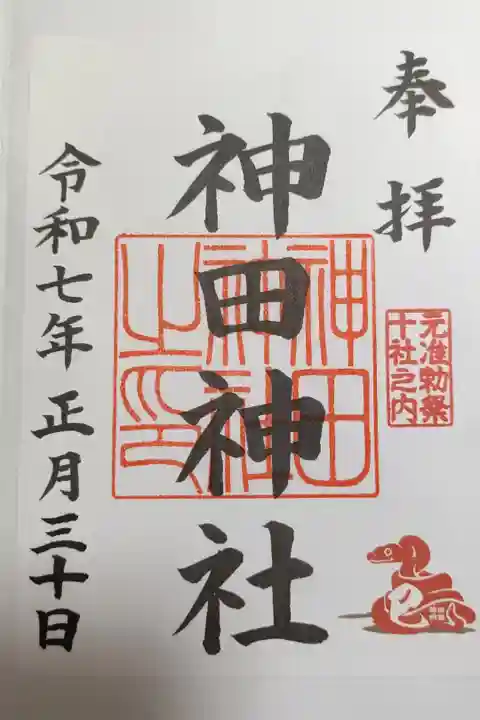 奉拝
元准勅祭
十社之内
巳
神田神社
神田
神社
之印
令和七年正月三十日